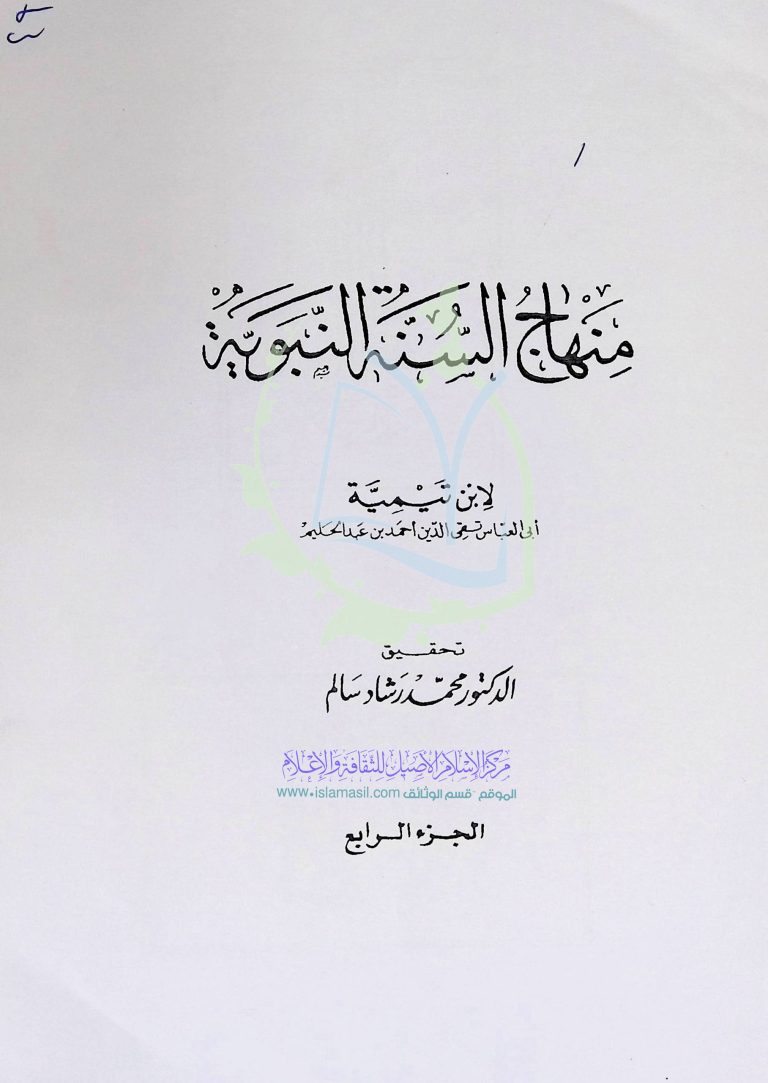 مِنهَاجُ السُّنَّة النَّبَوِيَّة
لِابْن تَيْمِيَّة
أبي العباس تقي الدين أحمد بن عبد الحليم
تحقيق
الدكتور محمد رشاد سالم
مركز الإسلام الأصيل للثقافة والإعلام
الموقع - قسم الوثائق www.islamasil.com
الجزء الرابع